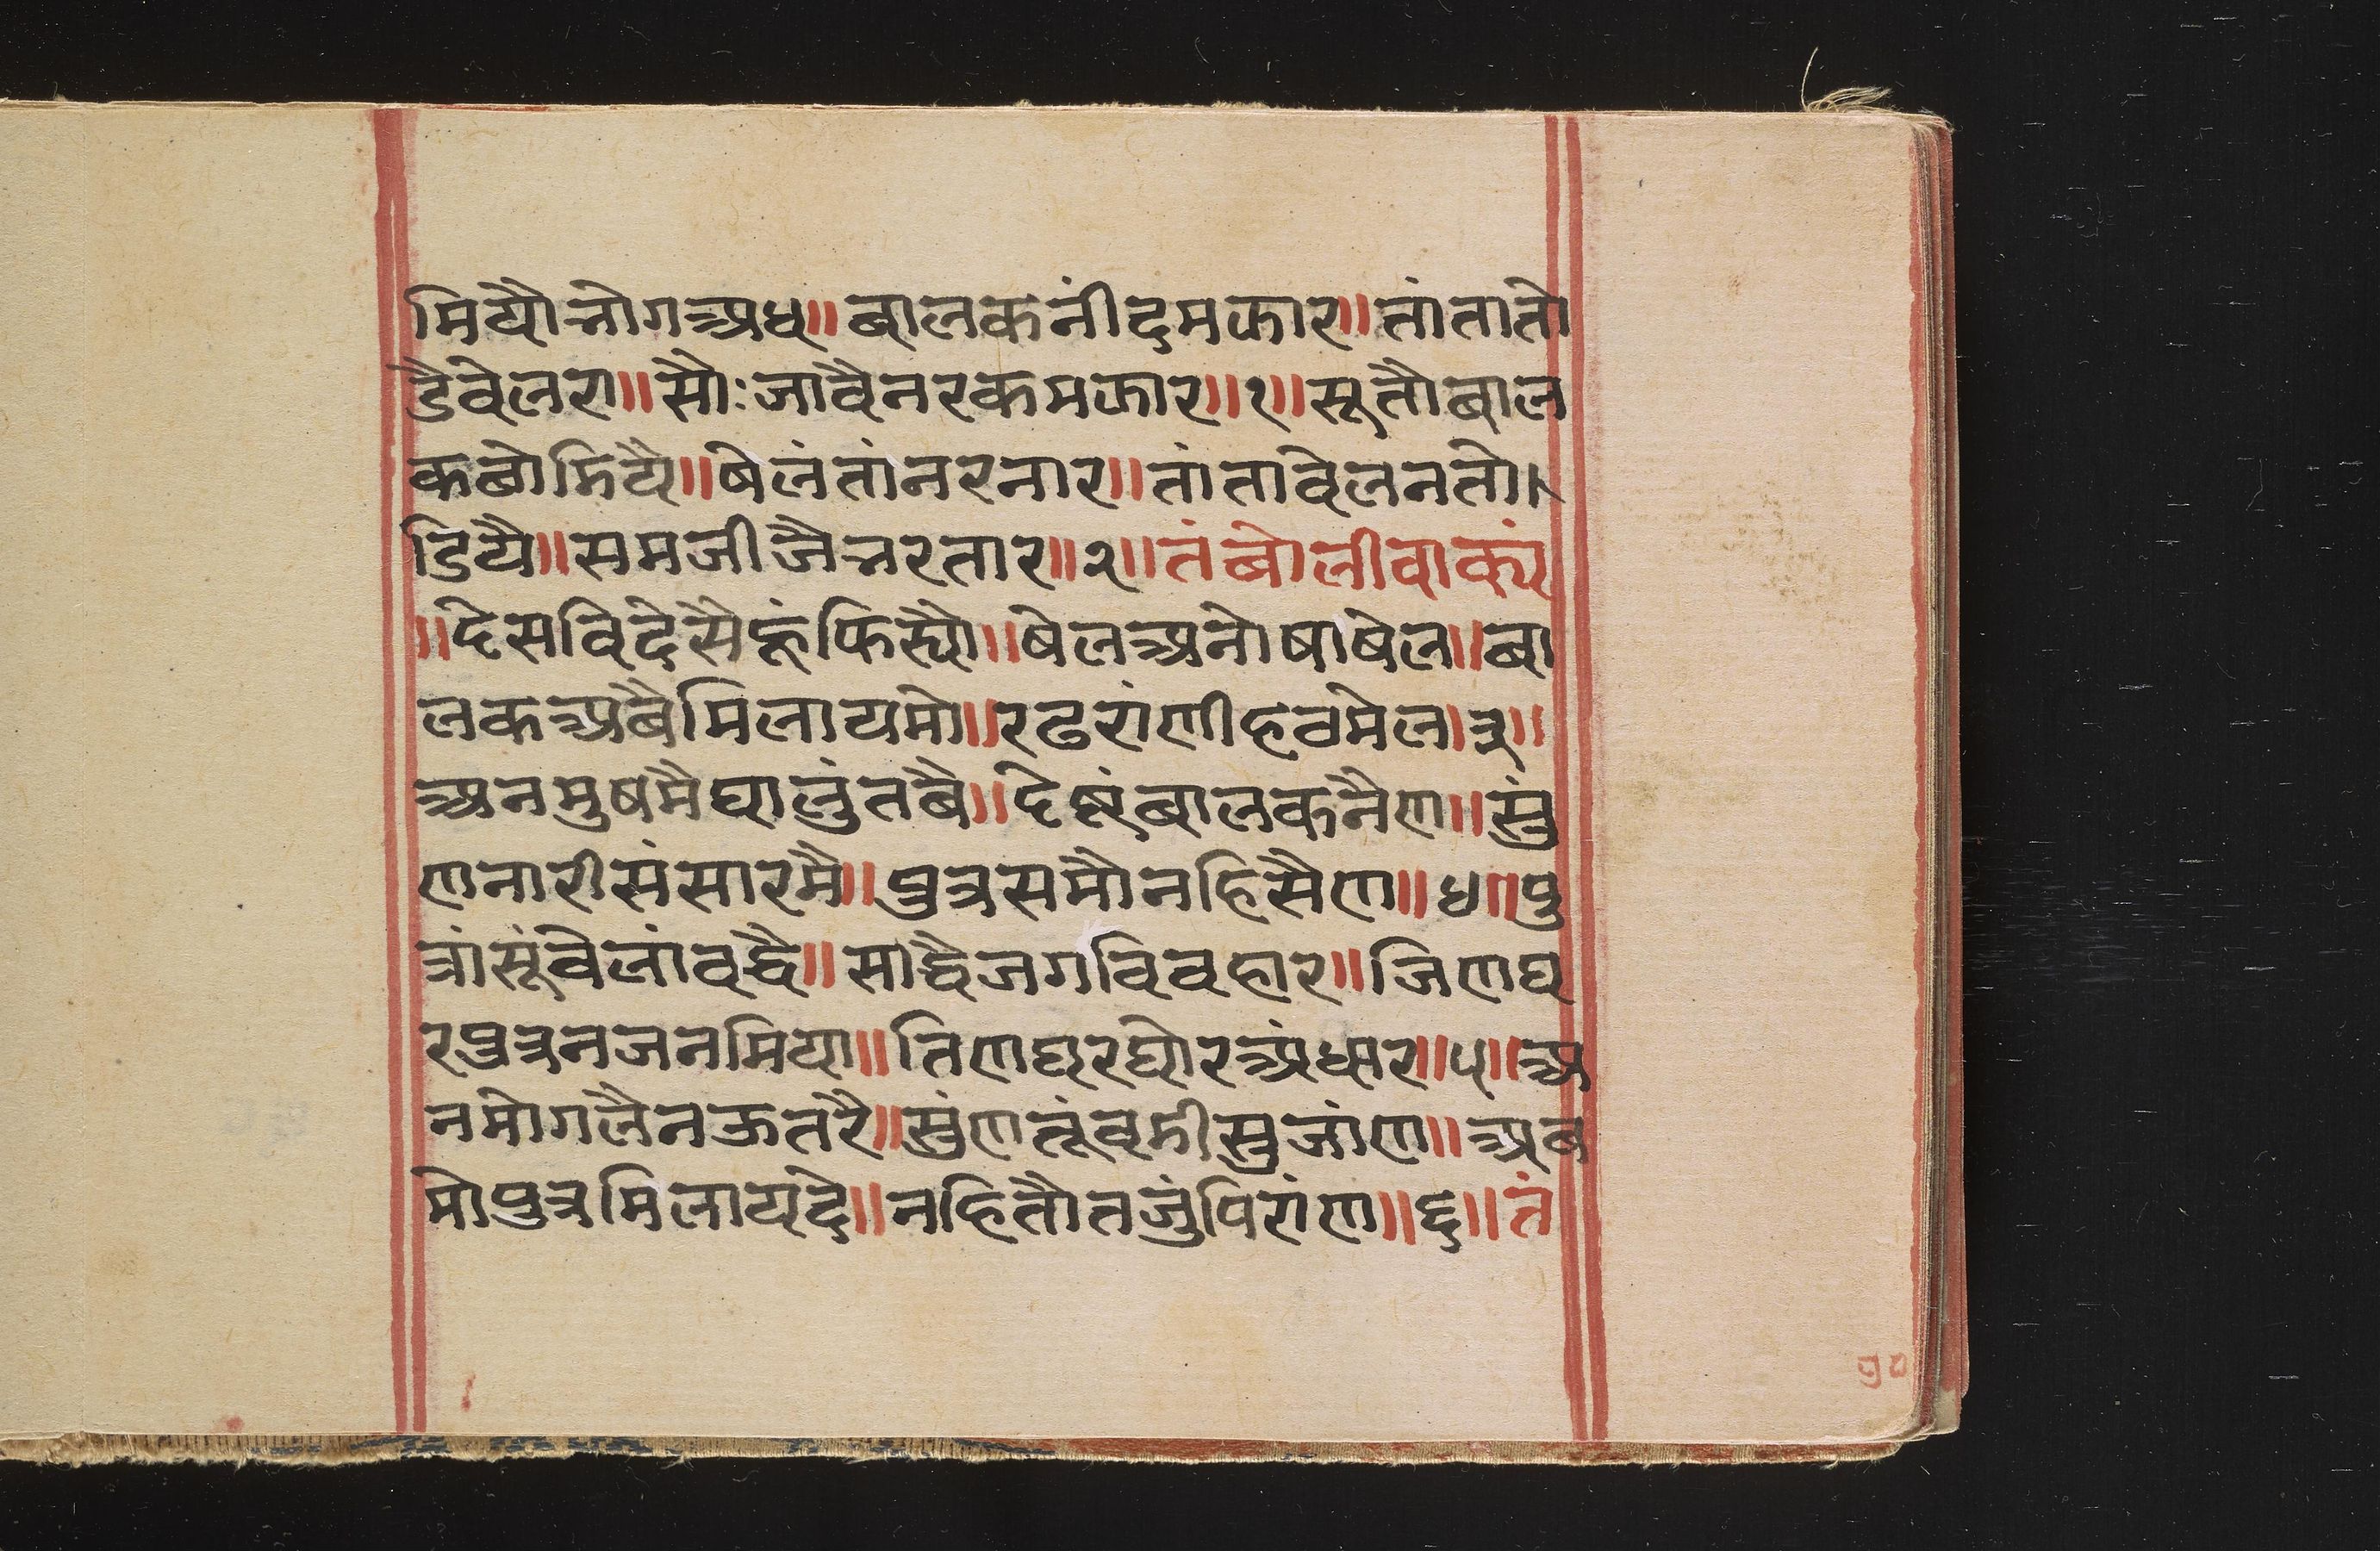 मियौ भोग अध॥ बालक नींद मझार॥ तां तातो
डै वेलरा॥ सौः जावै नरक मझार॥१॥ सूतौ बाल
क बोमियै॥ षेलंतां नर नार॥ तां ता वेल न तो।
डियै॥ समजीजै भरतार॥२॥ तंबोली वाक्यं
॥ देस विदेसै हूं फिस्यौ॥ षेल अनोषा षेल॥ बा
लक अबै मिलाय मो॥ रढ रांणी हठ मेल।३॥
अन मुष मै घालुं तबै॥ देषूं बालक नैण॥ सुं
ण नारी संसार मै॥ पुत्र समौ नहि सैण॥४॥ पु
त्रां सूं वेलां वद्वै॥ साद्वै जग विवहार॥ जिण घ
र पुत्र न जनमिया॥ तिण घर घोर अंधार॥५॥ अ
न मो गलै न ऊतरै॥ सुंण तूं वमी सुजांण॥ अब
मो पुत्र मिलाय दे॥ नहि तौ तजुं पिरांण॥६॥ तं
१०